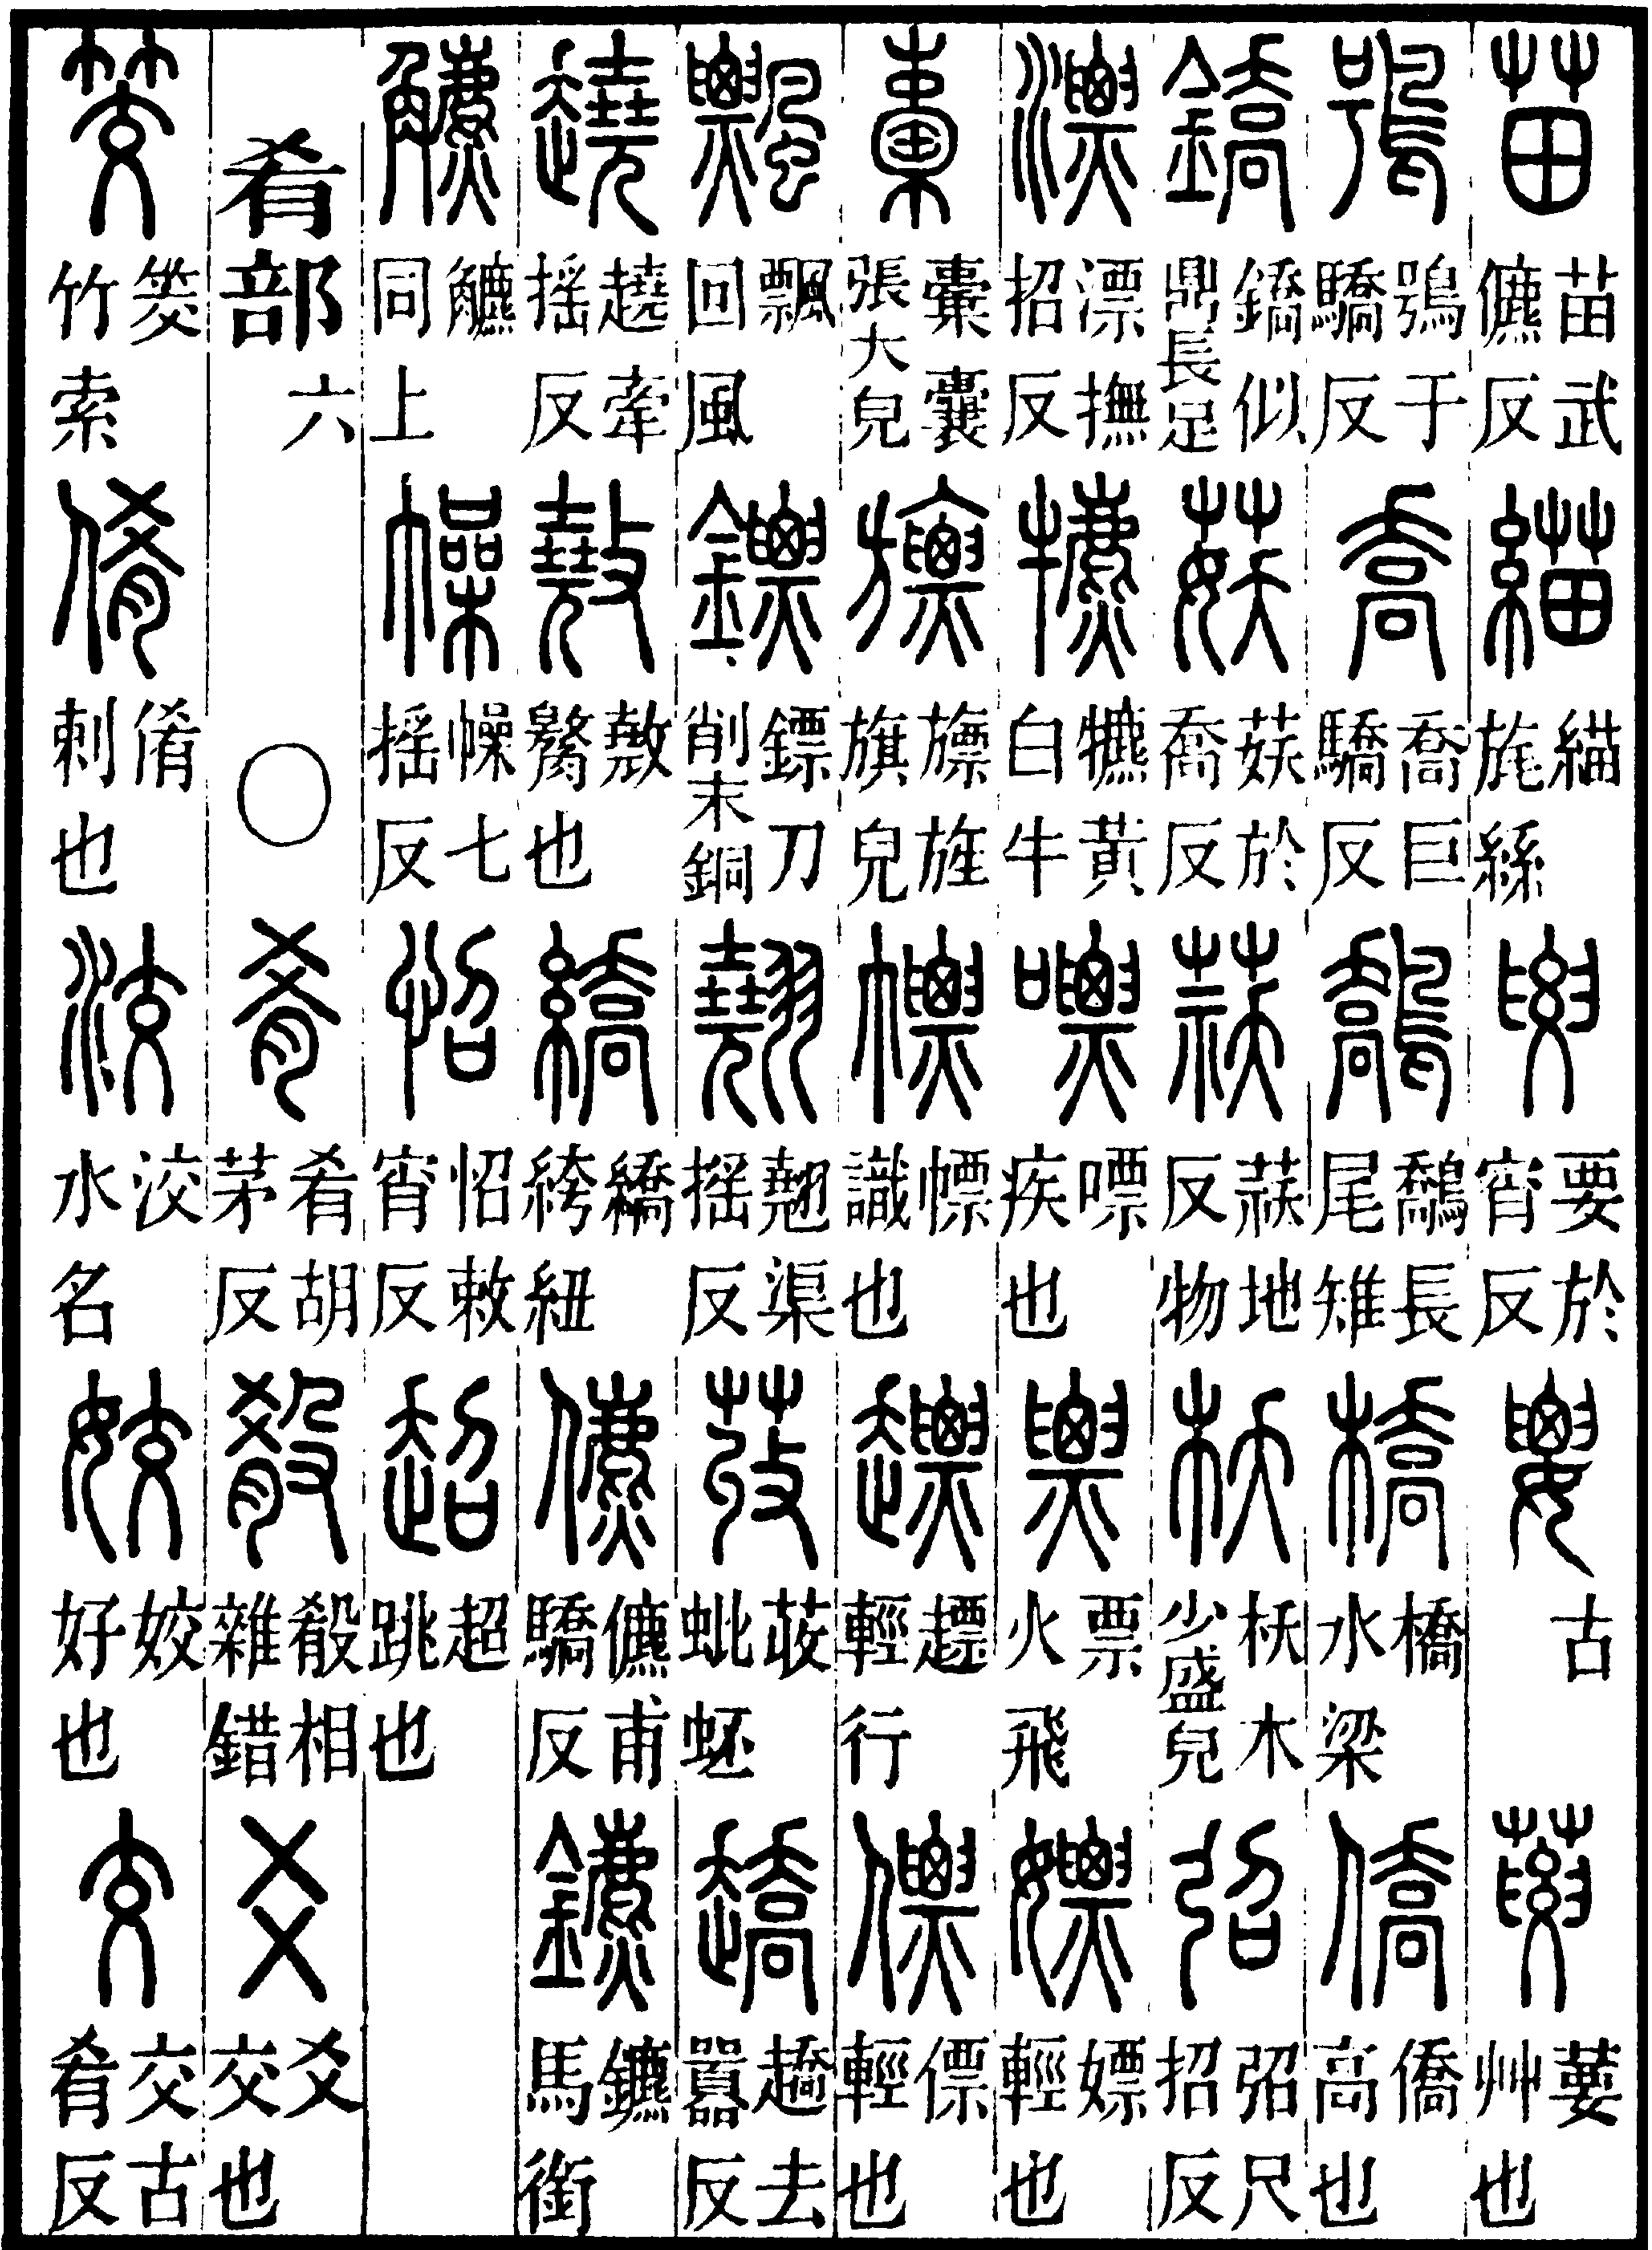 苗 苗武儦反 緢 緢旄絲 要 要於宵反 古 葽 葽艸也
鴞 鴞于驕反 喬 喬巨驕反 鷮 鷮長尾雉 橋 橋水梁 僑 僑高也
鐈 鐈似鼎長足 𡝩 𡝩於喬反 䄏 䄏地反物 枖 枖木少盛皃 弨 弨尺招反
漂 漂撫招反 犥 犥黃白牛 嘌 嘌疾也 票 票火飛 嫖 嫖輕也
㯱 㯱囊張大皃 旚 旚旌旗皃 幖 幖識也 𧽤 𧽤輕行 僄 僄輕也
飄 飄回風 鏢 鏢刀削末銅 翹 翹渠搖反 荍 荍蚍 趫 趫去囂反
趬 趬牽搖反 也 繑 繑絝紐 儦 儦甫驕反 鑣 鑣馬銜
同上 幧 幧七搖反 怊 怊敕宵反 超 超跳也
肴部 六 ○ 肴 肴胡茅反 殽 殽相雜錯 爻 爻交也
筊 筊竹索 倄 倄刺也 洨 洨水名 姣 姣好也 交 交古肴反